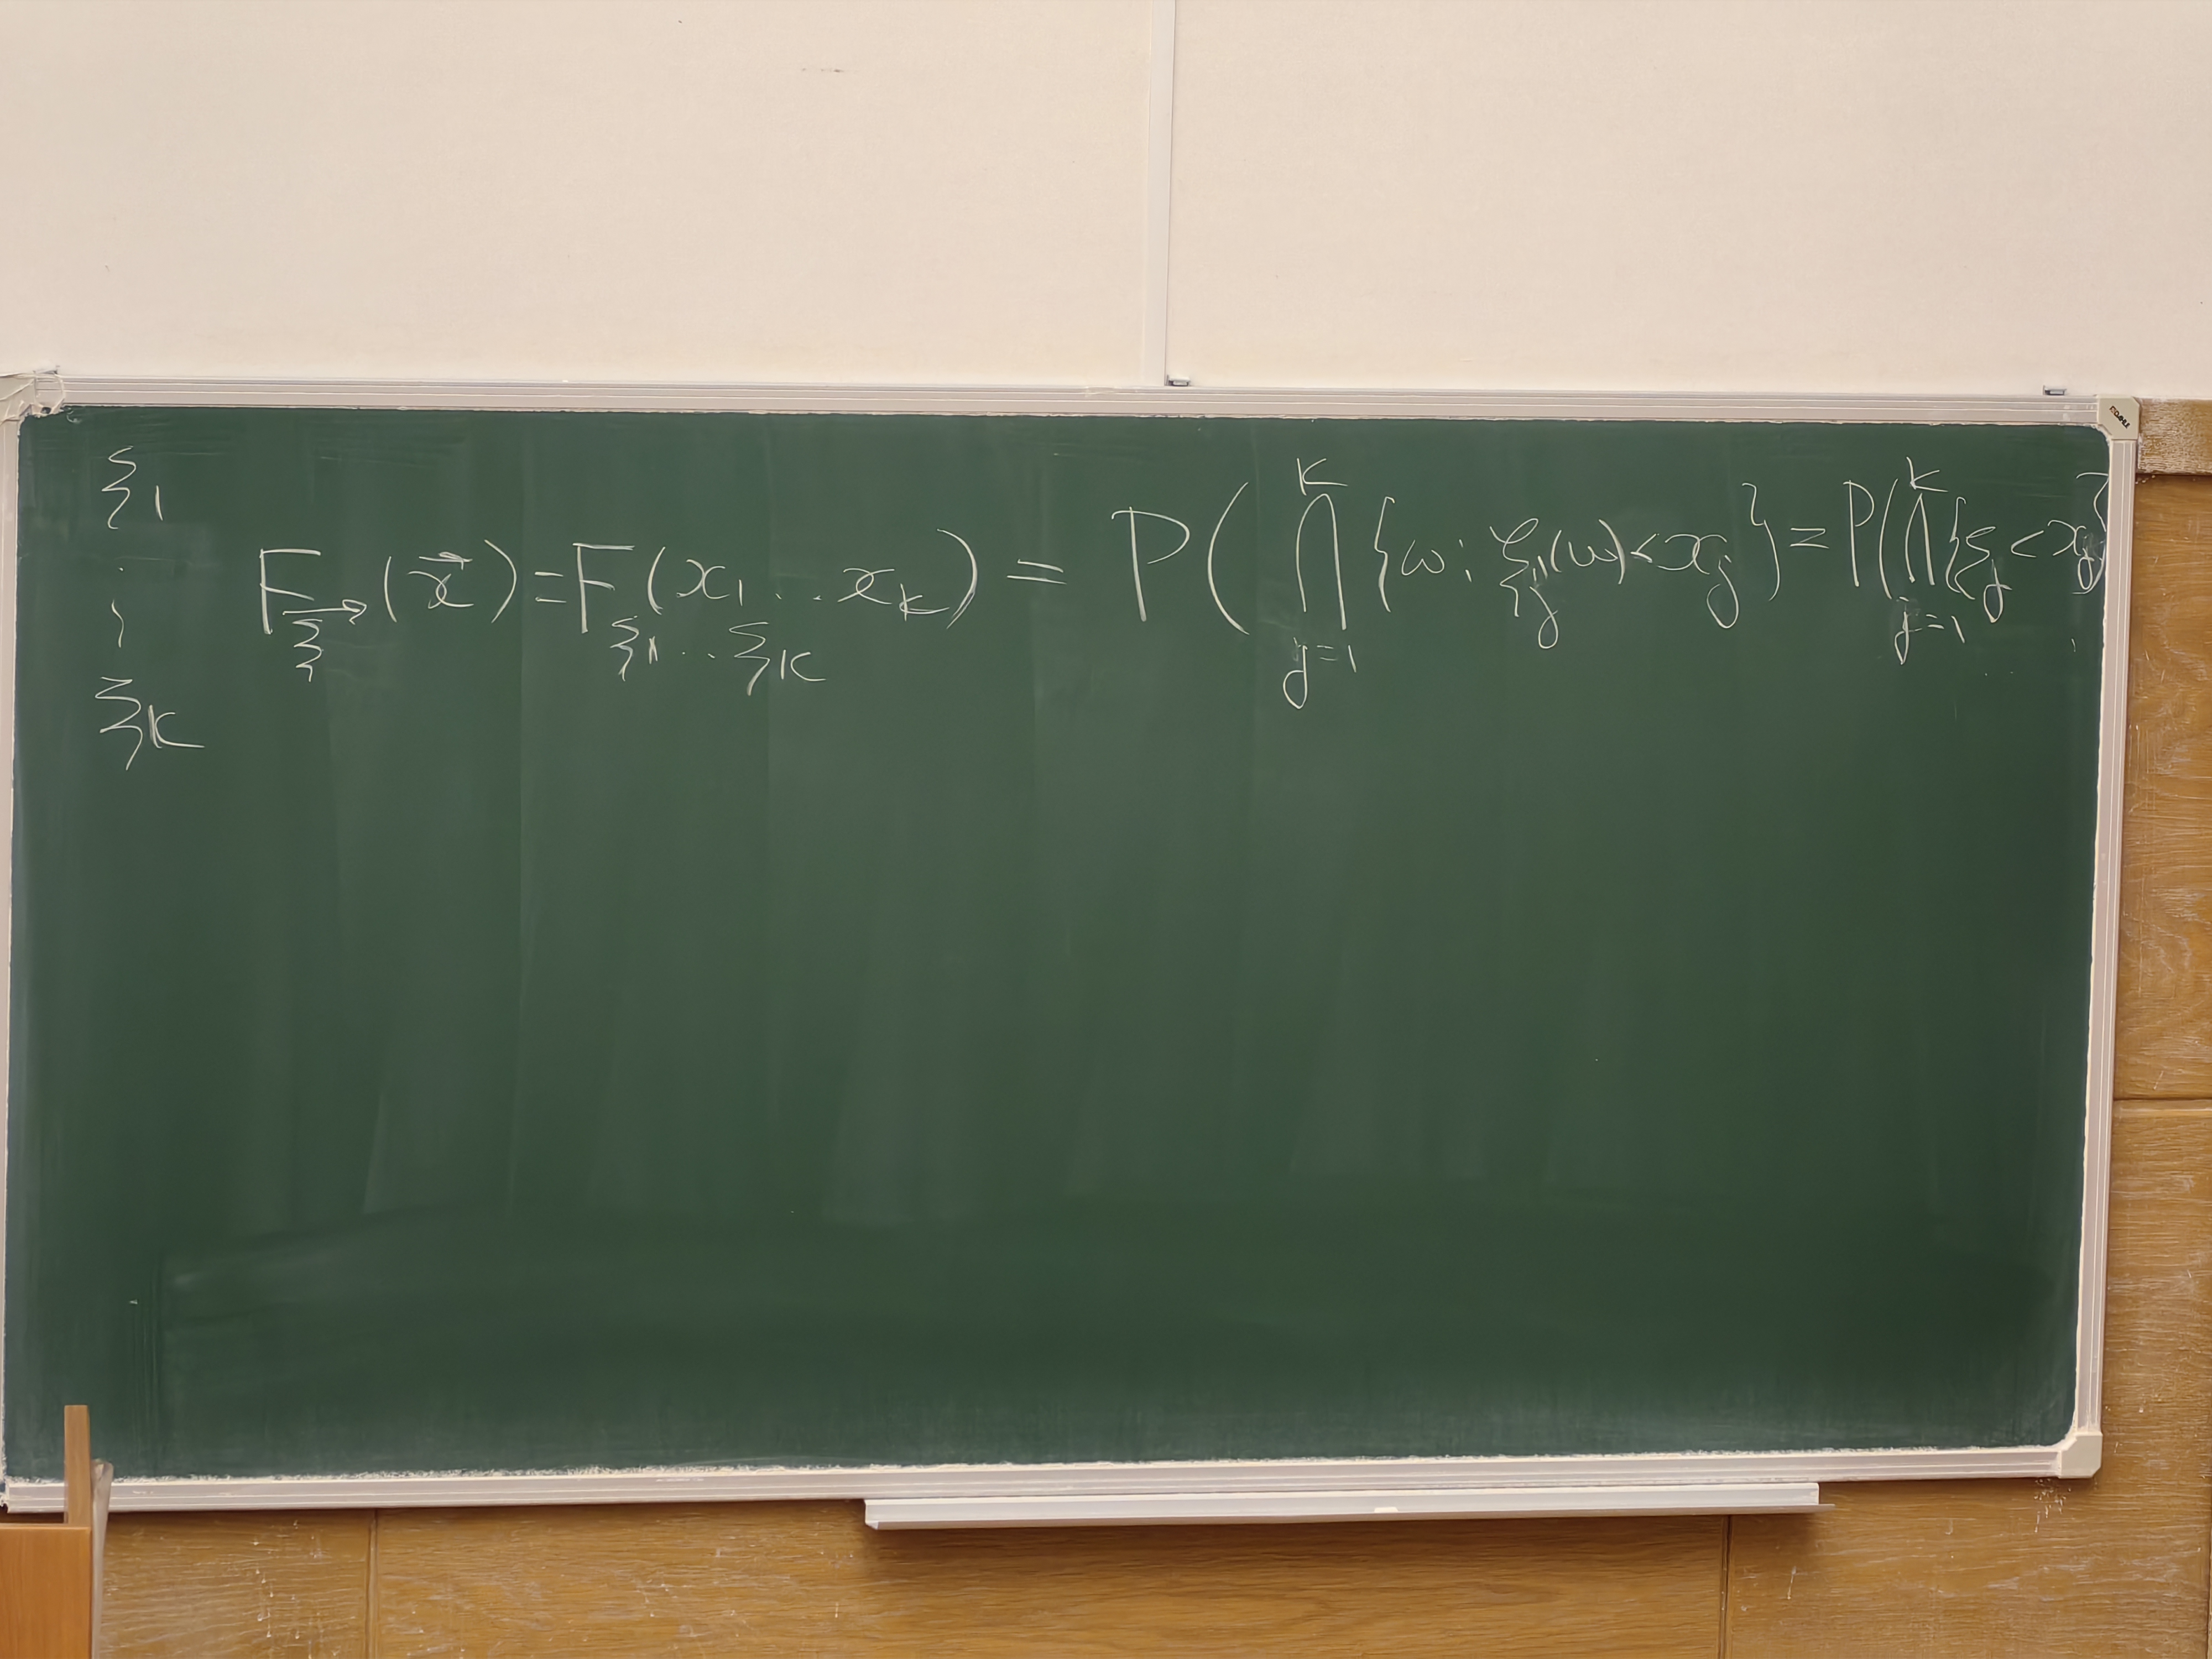 ξ₁
⋮
ξ_k
F_{\vec{ξ}}(\vec{x}) = F_{ξ₁..ξ_k}(x₁...x_k) = P(⋂_{j=1}^{k} {ω: ξ_j(ω) < x_j}) = P(⋂_{j=1}^{k} {ξ_j < x_j}